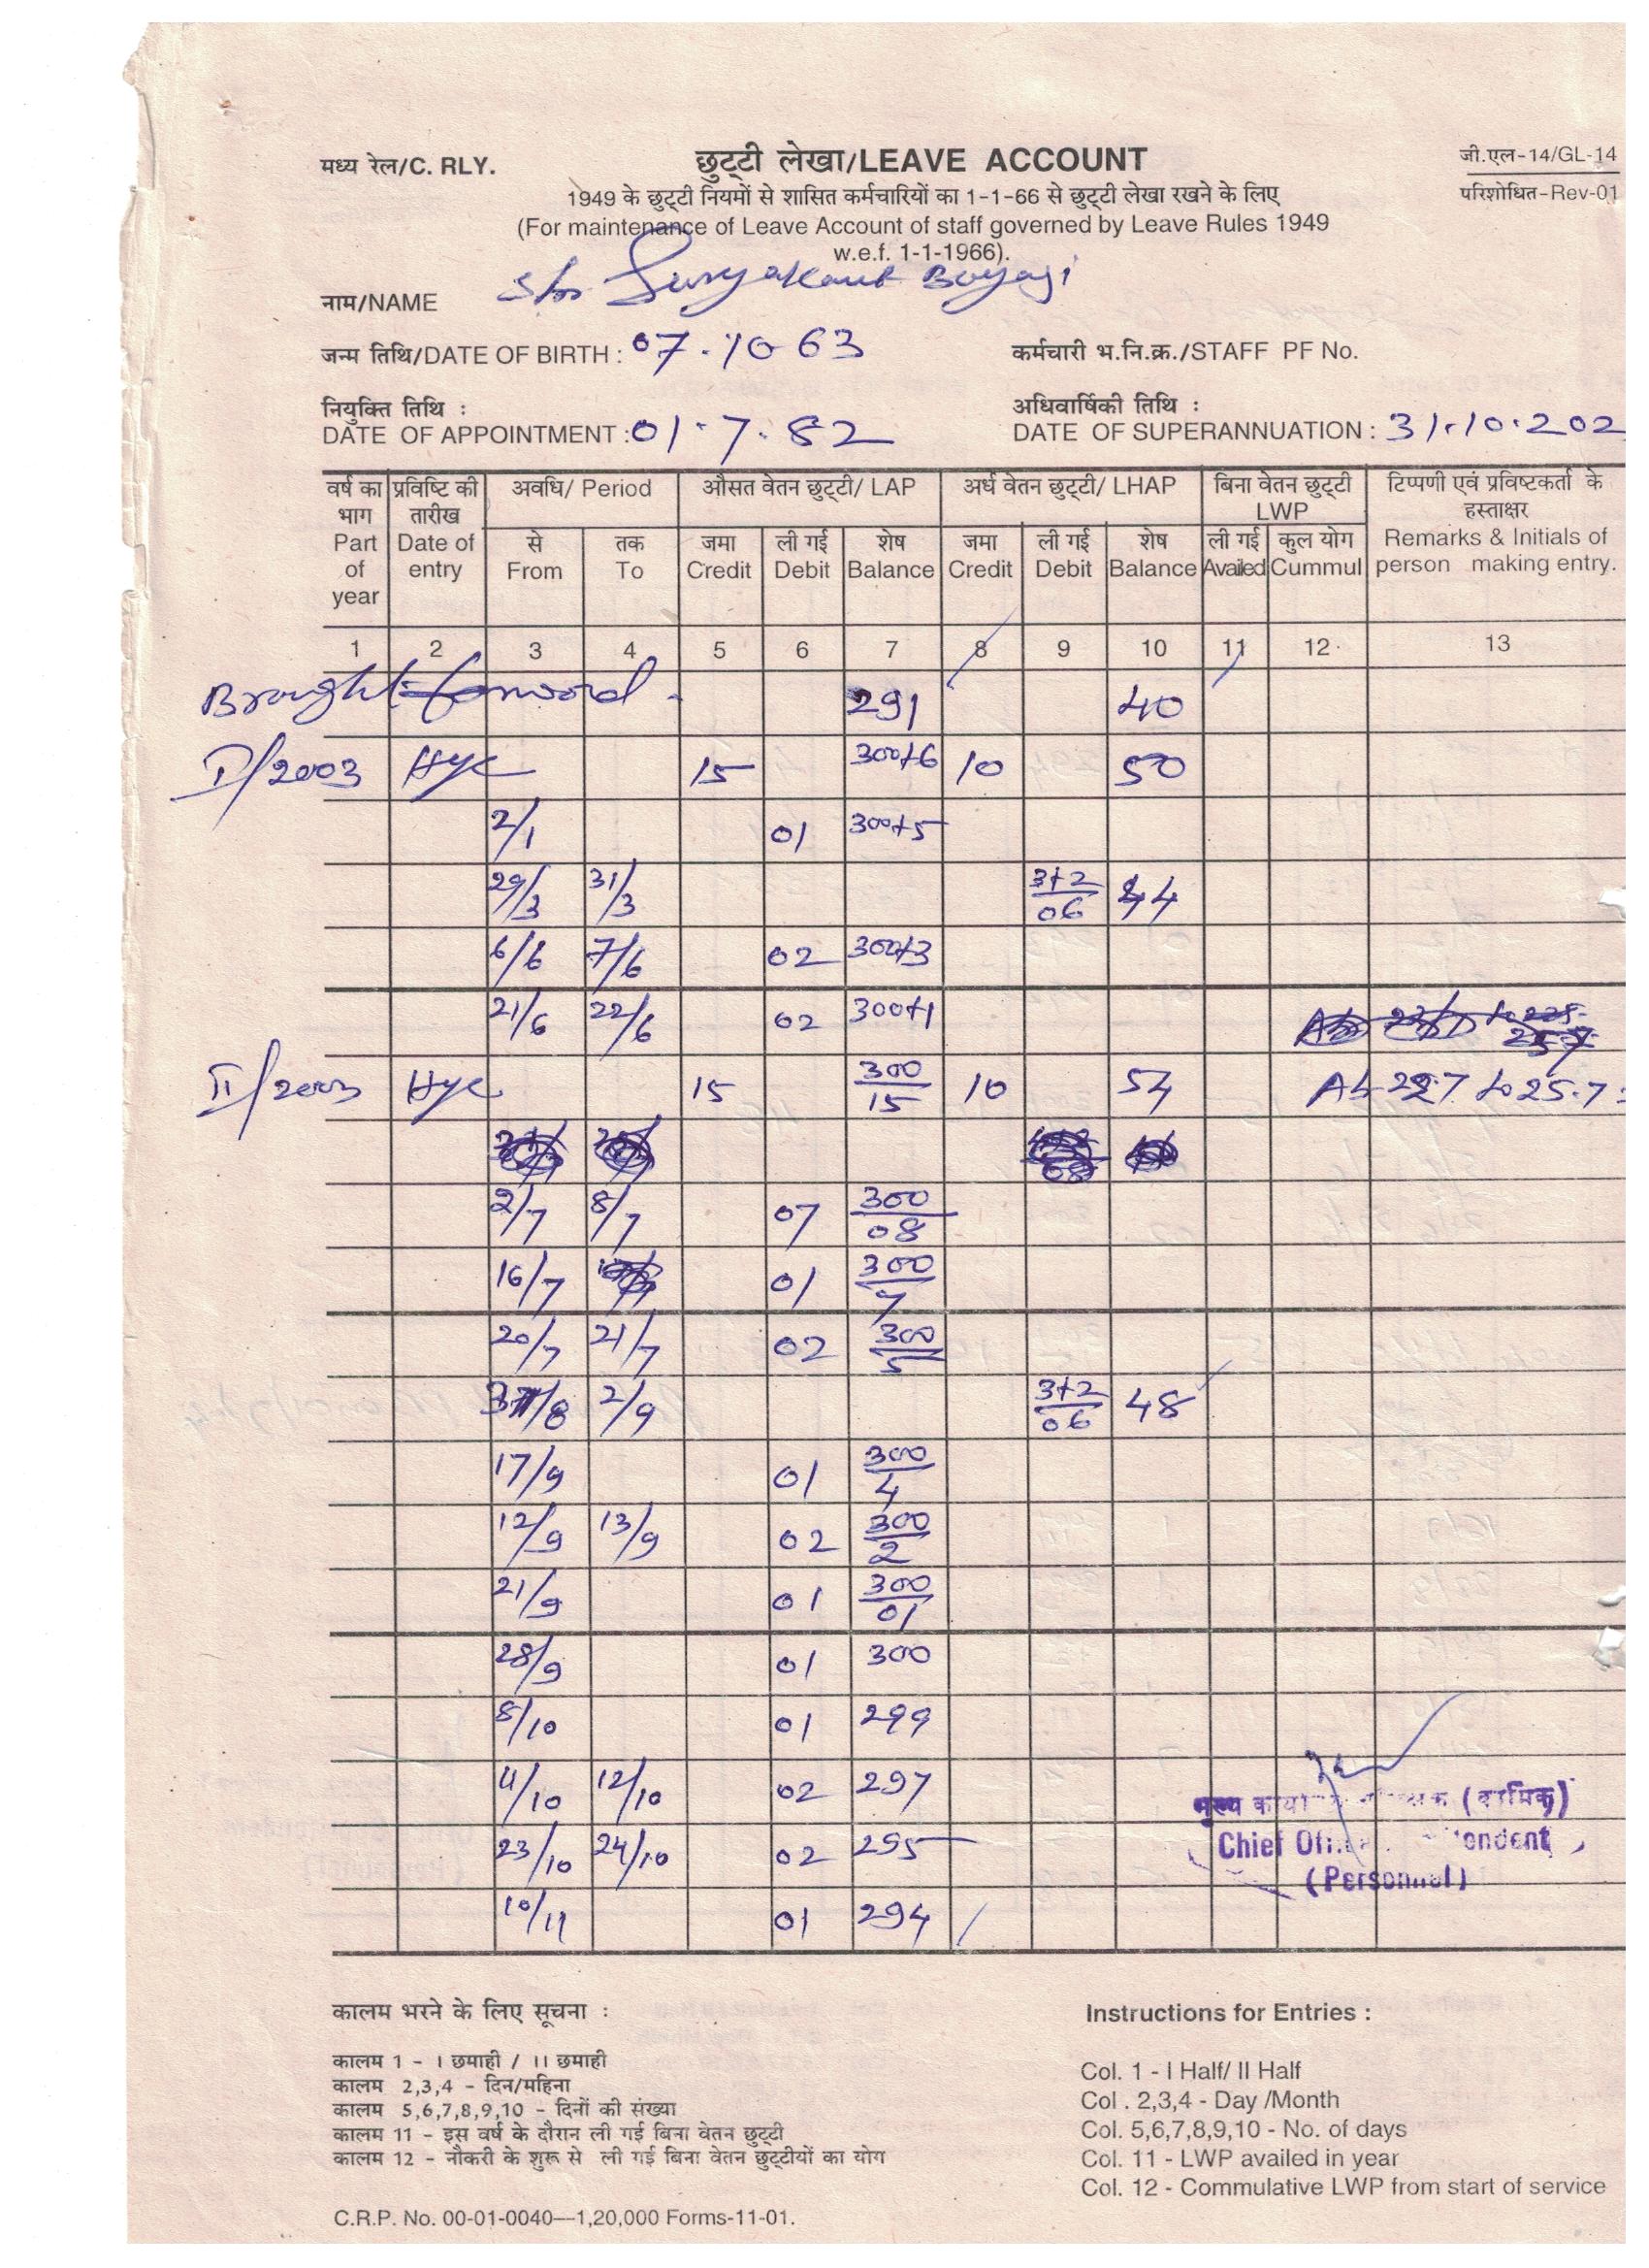 मध्य रेल/C. RLY.
छुट्टी लेखा/LEAVE ACCOUNT
जी.एल-14/GL-14
परिशोधित-Rev-01
1949 के छुट्टी नियमों से शासित कर्मचारियों का 1-1-66 से छुट्टी लेखा रखने के लिए
(For maintenance of Leave Account of staff governed by Leave Rules 1949
w.e.f. 1-1-1966).
नाम/NAME Suryakant
जन्म तिथि/DATE OF BIRTH : 07.10 63 कर्मचारी भ.नि.क्र./STAFF PF No.
नियुक्ति तिथि : अधिवार्षिकी तिथि :
DATE OF APPOINTMENT : 01.7.82 DATE OF SUPERANNUATION : 31.10.202
वर्ष का भाग Part of year
प्रविष्टि की तारीख Date of entry
अवधि/ Period
औसत वेतन छुट्टी/ LAP
अर्ध वेतन छुट्टी/ LHAP
बिना वेतन छुट्टी LWP
टिप्पणी एवं प्रविष्टकर्ता के हस्ताक्षर Remarks & Initials of person making entry.
से From तक To जमा Credit ली गई Debit शेष Balance जमा Credit ली गई Debit शेष Balance ली गई Availed कुल योग Cummul
1 2 3 4 5 6 7 8 9 10 11 12 13
Brought forword - 291 40
I/2003 Hyc 15 300+6 10 50
2/1 01 300+5
29/3 31/3 3+2/06 44
6/6 7/6 02 300+3
21/6 22/6 02 300+1
II/2003 Hyc 15 300/15 10 54 Ab 22.7 to 25.7
2/7 8/7 07 300/08
16/7 01 300/7
20/7 21/7 02 300/5
31/8 2/9 3+2/06 48
17/9 01 300/4
12/9 13/9 02 300/2
21/9 01 300/01
28/9 01 300
8/10 01 299
11/10 12/10 02 297
23/10 24/10 02 295
10/11 01 294
मुख्य (कार्मिक)
Chief
(Personnel)
कालम भरने के लिए सूचना :
कालम 1 - । छमाही / ।। छमाही
कालम 2,3,4 - दिन/महिना
कालम 5,6,7,8,9,10 - दिनों की संख्या
कालम 11 - इस वर्ष के दौरान ली गई बिना वेतन छुट्टी
कालम 12 - नौकरी के शुरू से ली गई बिना वेतन छुट्टीयों का योग
Instructions for Entries :
Col. 1 - I Half/ II Half
Col . 2,3,4 - Day /Month
Col. 5,6,7,8,9,10 - No. of days
Col. 11 - LWP availed in year
Col. 12 - Commulative LWP from start of service
C.R.P. No. 00-01-0040—1,20,000 Forms-11-01.